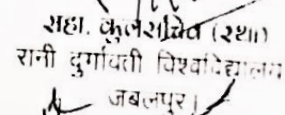 सहा. कुलसचिव (स्था)
रानी दुर्गावती विश्वविद्यालय
जबलपुर।